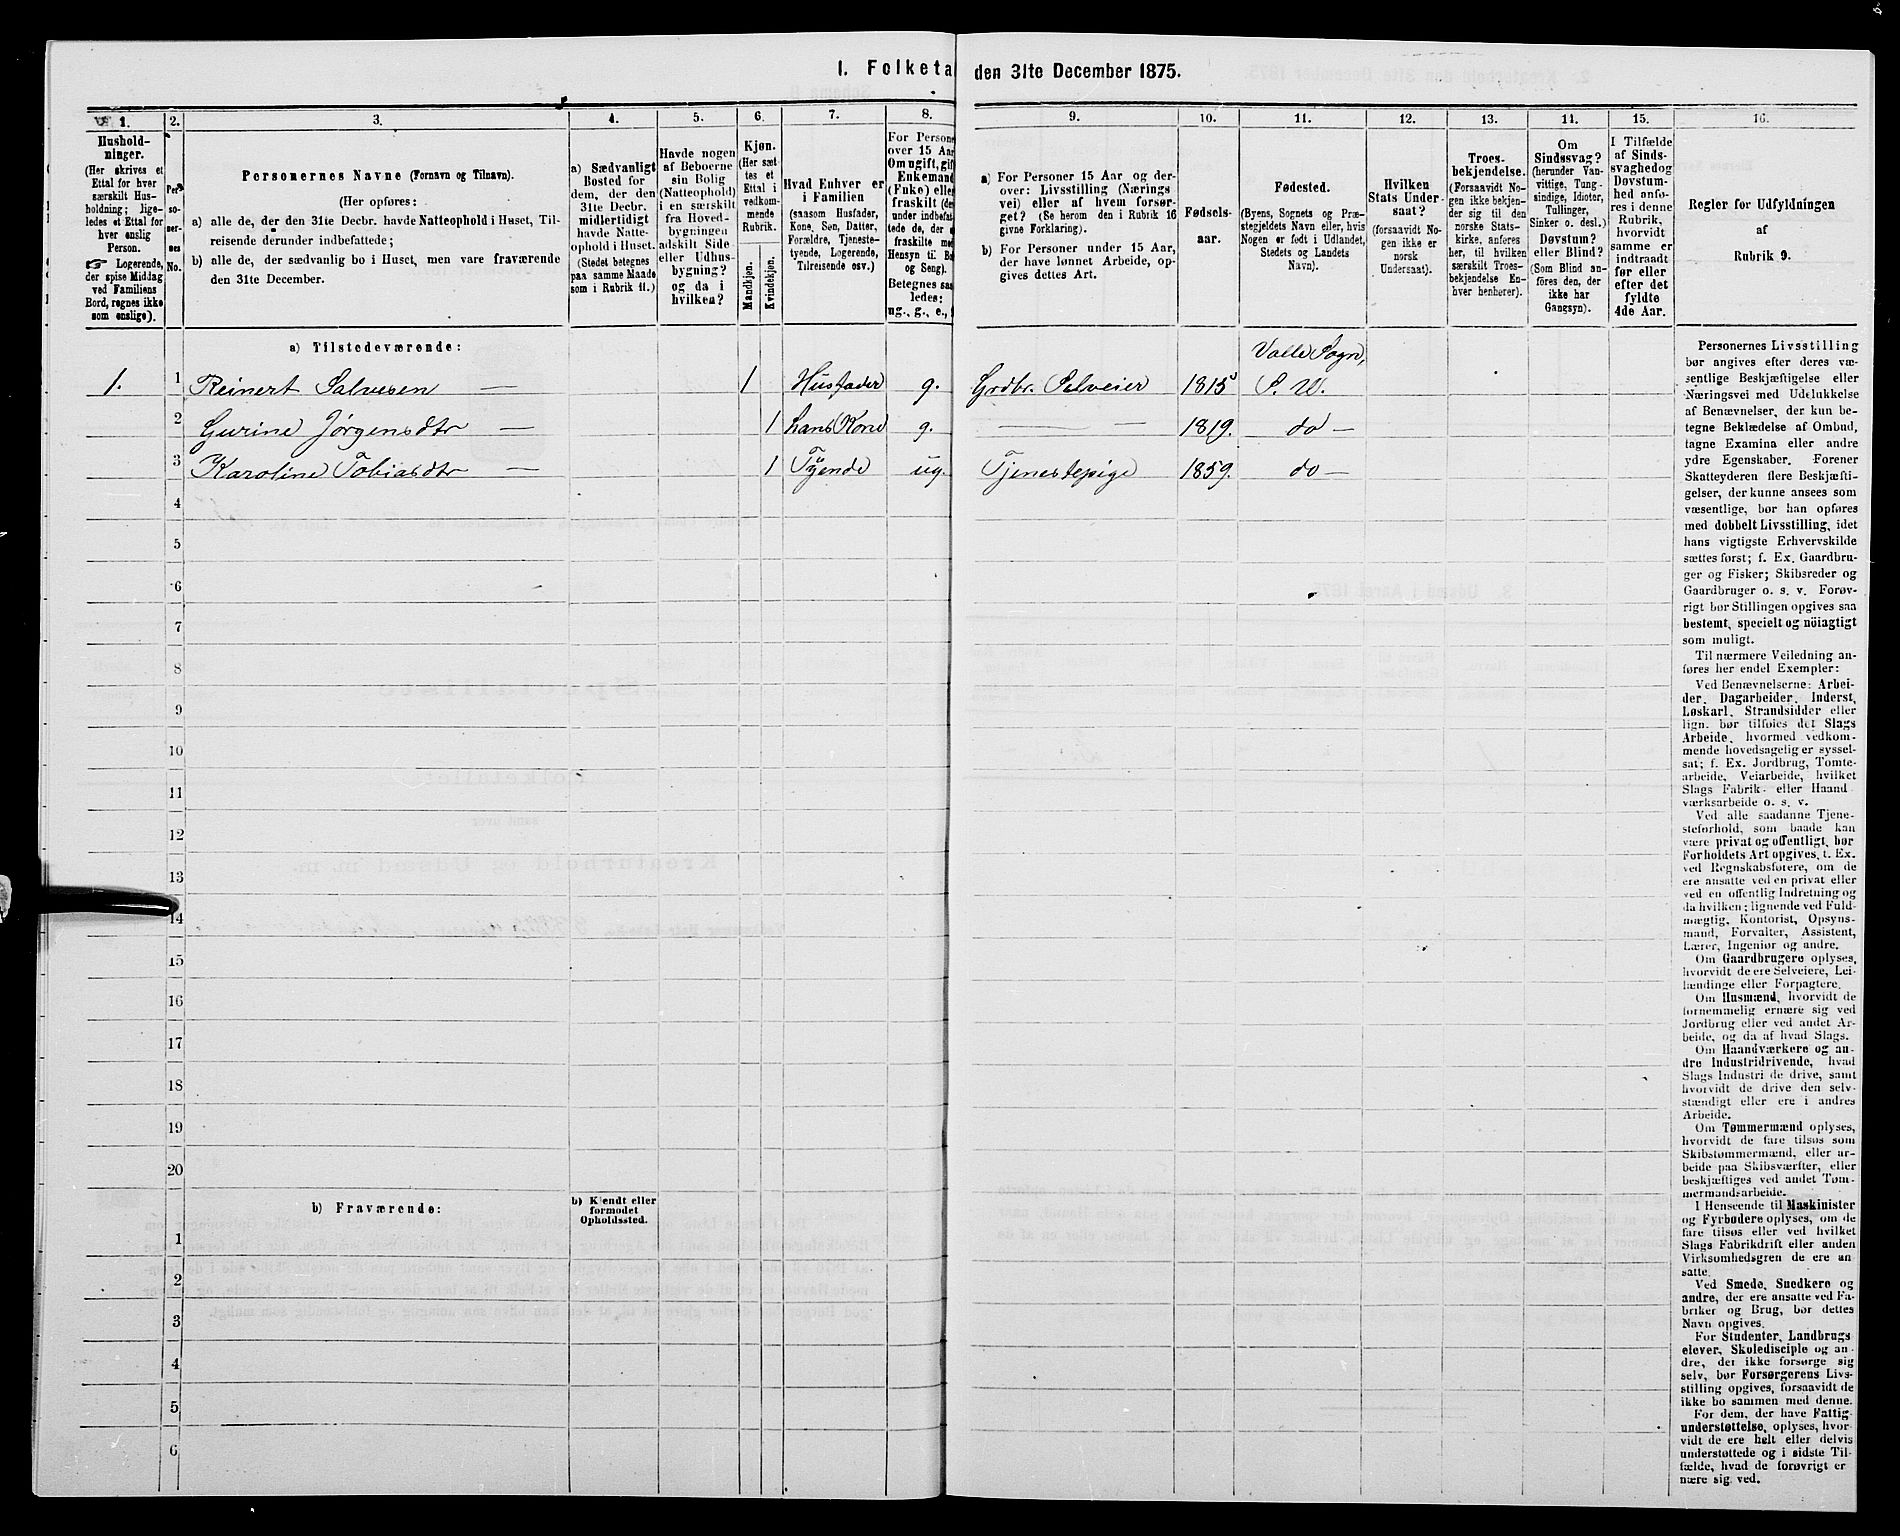 I. Folketa den 31te December 1875.
1.
Hushold-
ninger.
(Her skrives et
Ettal for hver
særskilt Hus-
holdning; lige-
ledes et Ettal for
hver enslig
Person.
☞ Logerende,
der spise Middag
ved Familiens
Bord, regnes ikke
som enslige).
2.
Per-
so-
ner-
nes
No.
3.
Personernes Navne (Fornavn og Tilnavn).
(Her opføres:
a) alle de, der den 31te Decbr. havde Natteophold i Huset, Til-
reisende derunder indbefattede;
b) alle de, der sædvanlig bo i Huset, men vare fraværende
den 31te December.
4.
a) Sædvanligt
Bosted for
dem, der den
31te Decbr.
midlertidigt
havde Natte-
ophold i Huset.
(Stedet betegnes
paa samme Maade
som i Rubrik 11.)
5.
Havde nogen
af Beboerne
sin Bolig
(Natteophold)
i en særskilt
fra Hoved-
bygningen
adskilt Side-
eller Udhus-
bygning?
og da i
hvilken?
6.
Kjøn.
(Her sæt
tes et
Ettal i
vedkom-
mende
Rubrik.
Mandkjøn.
Kvindekjøn.
7.
Hvad Enhver er
i Familien
(saasom Husfader,
Kone, Søn, Datter,
Forældre, Tjeneste-
tyende, Logerende,
Tilreisende osv.)
8.
For Persone
over 15 Aar
Om ugift, gift
Enkemand
(Fuke) eller
fraskilt (der-
under indbefat
tede de, der e
fraskilte me
Hensyn til Bo
og Seng).
Betegnes saa
ledes:
ug., g., e.,
9.
a) For Personer 15 Aar og der-
over: Livsstilling (Nærings
vei) eller af hvem forsør-
get? (Se herom den i Rubrik 16
givne Forklaring).
b) For Personer under 15 Aar,
der have lønnet Arbeide, op-
gives dettes Art.
10.
Fødsels-
aar.
11.
Fødested.
(Byens, Sognets og Præ-
stegjeldets Navn eller, hvis
Nogen er født i Udlandet,
Stedets og Landets
Navn).
12.
Hvilken
Stats Under-
saat?
(forsaavidt No-
gen ikke er
norsk
Undersaat).
13.
Troes-
bekjendelse.
(Forsaavidt No-
gen ikke bekjen-
der sig til den
norske Stats-
kirke, anføres
her, til hvilken
særskilt Troes-
bekjendelse En-
hver henhører).
14.
Om
Sindssvag?
(herunder Van-
vittige, Tung-
sindige, Idioter,
Tullinger,
Sinker o. desl.)
Døvstum?
eller Blind?
(Som Blind an-
føres den, der
ikke har
Gangsyn).
15.
I Tilfælde
af Sinds-
svaghed og
Døvstum-
hed anfø-
res i denne
Rubrik,
hvorvidt
samme er
indtraadt
før eller
efter det
fyldte
4de Aar.
16.
Regler for Udfyldningen
af
Rubrik 9.
a) Tilstedeværende:
Valle Sogn,
1. 1 Reinert Salvesen — 1 Husfader g. Grdbr. Selveier 1815 S. U.
2 Gurine Jørgensdtr — 1 hans Kone g. — — 1819. do —
3 Karoline Tobiasdtr — 1 Tyende ug. Tjenestepige 1859. do —
4
5
6
7
8
9
10
11
12
13
14
15
16
17
18
19
20
b) Fraværende:
b) Kjendt eller
formodet
Opholdssted.
1
2
3
4
5
6
Personernes Livsstilling
bør angives efter deres væ-
sentlige Beskjæftigelse eller
Næringsvei med Udelukkelse
af Benævnelser, der kun be-
tegne Beklædelse af Ombud,
tagne Examina eller andre
ydre Egenskaber. Forener
Skatteyderen flere Beskjæfti-
gelser, der kunne ansees som
væsentlige, bør han opføres
med dobbelt Livsstilling, idet
hans vigtigste Erhvervskilde
sættes først; f. Ex. Gaardbru-
ger og Fisker; Skibsreder og
Gaardbruger o. s. v. Forøv-
rigt bør Stillingen opgives saa
bestemt, specielt og nöiagtigt
som muligt.
Til nærmere Veiledning an-
føres her endel Exempler:
Ved Benævnelserne: Arbei-
der, Dagarbeider, Inderst,
Løskarl, Strandsidder eller
lign. bør tilføies det Slags
Arbeide, hvormed vedkom-
mende hovedsagelig er syssel-
sat; f. Ex. Jordbrug, Tomte-
arbeide, Veiarbeide, hvilket
Slags Fabrik- eller Haand-
værksarbeide o. s. v.
Ved alle saadanne Tjene-
steforhold, som baade kan
være privat og offentligt, bør
Forholdets Art opgives, t. Ex.
ved Regnskabsførere, om de
ere ansatte ved en privat eller
ved en offentlig Indretning og
da hvilken; lignende ved Fuld-
mægtig, Kontorist, Opsyns-
mand, Forvalter, Assistent,
Lærer, Ingeniør og andre.
Om Gaardbrugere oplyses,
hvorvidt de ere Selveiere, Lei-
lændinge eller Forpagtere.
Om Husmænd, hvorvidt de
fornemmelig ernære sig ved
Jordbrug eller ved andet Ar-
beide, og da af hvad Slags.
Om Haandværkere og an-
dre Industridrivende, hvad
Slags Industri de drive, samt
hvorvidt de drive den selv-
stændigt eller ere i andres
Arbeide.
Om Tømmermænd oplyses,
hvorvidt de fare tilsøs som
Skibstømmermænd, eller ar-
beide paa Skibsværfter, eller
beskjæftiges ved andet Tøm-
mermandsarbeide.
I Henseende til Maskinister
og Fyrbødere oplyses, om de
fare tilsøs eller ved hvilket
Slags Fabrikdrift eller anden
Virksomhedsgren de ere an-
satte.
Ved Smede, Snedkere og
andre, der ere ansatte ved Fa-
briker og Brug, bør dettes
Navn opgives.
For Studenter, Landbrugs
elever, Skoledisciple og an-
dre, der ikke forsørge sig
selv, bør Forsørgerens Livs-
stilling opgives, forsaavidt de
ikke bo sammen med denne.
For dem, der have Fattig-
understøttelse, oplyses, hvor-
vidt de ere helt eller delvis
understøttede og i sidste Til-
fælde, hvad de forøvrigt er
nære sig ved.